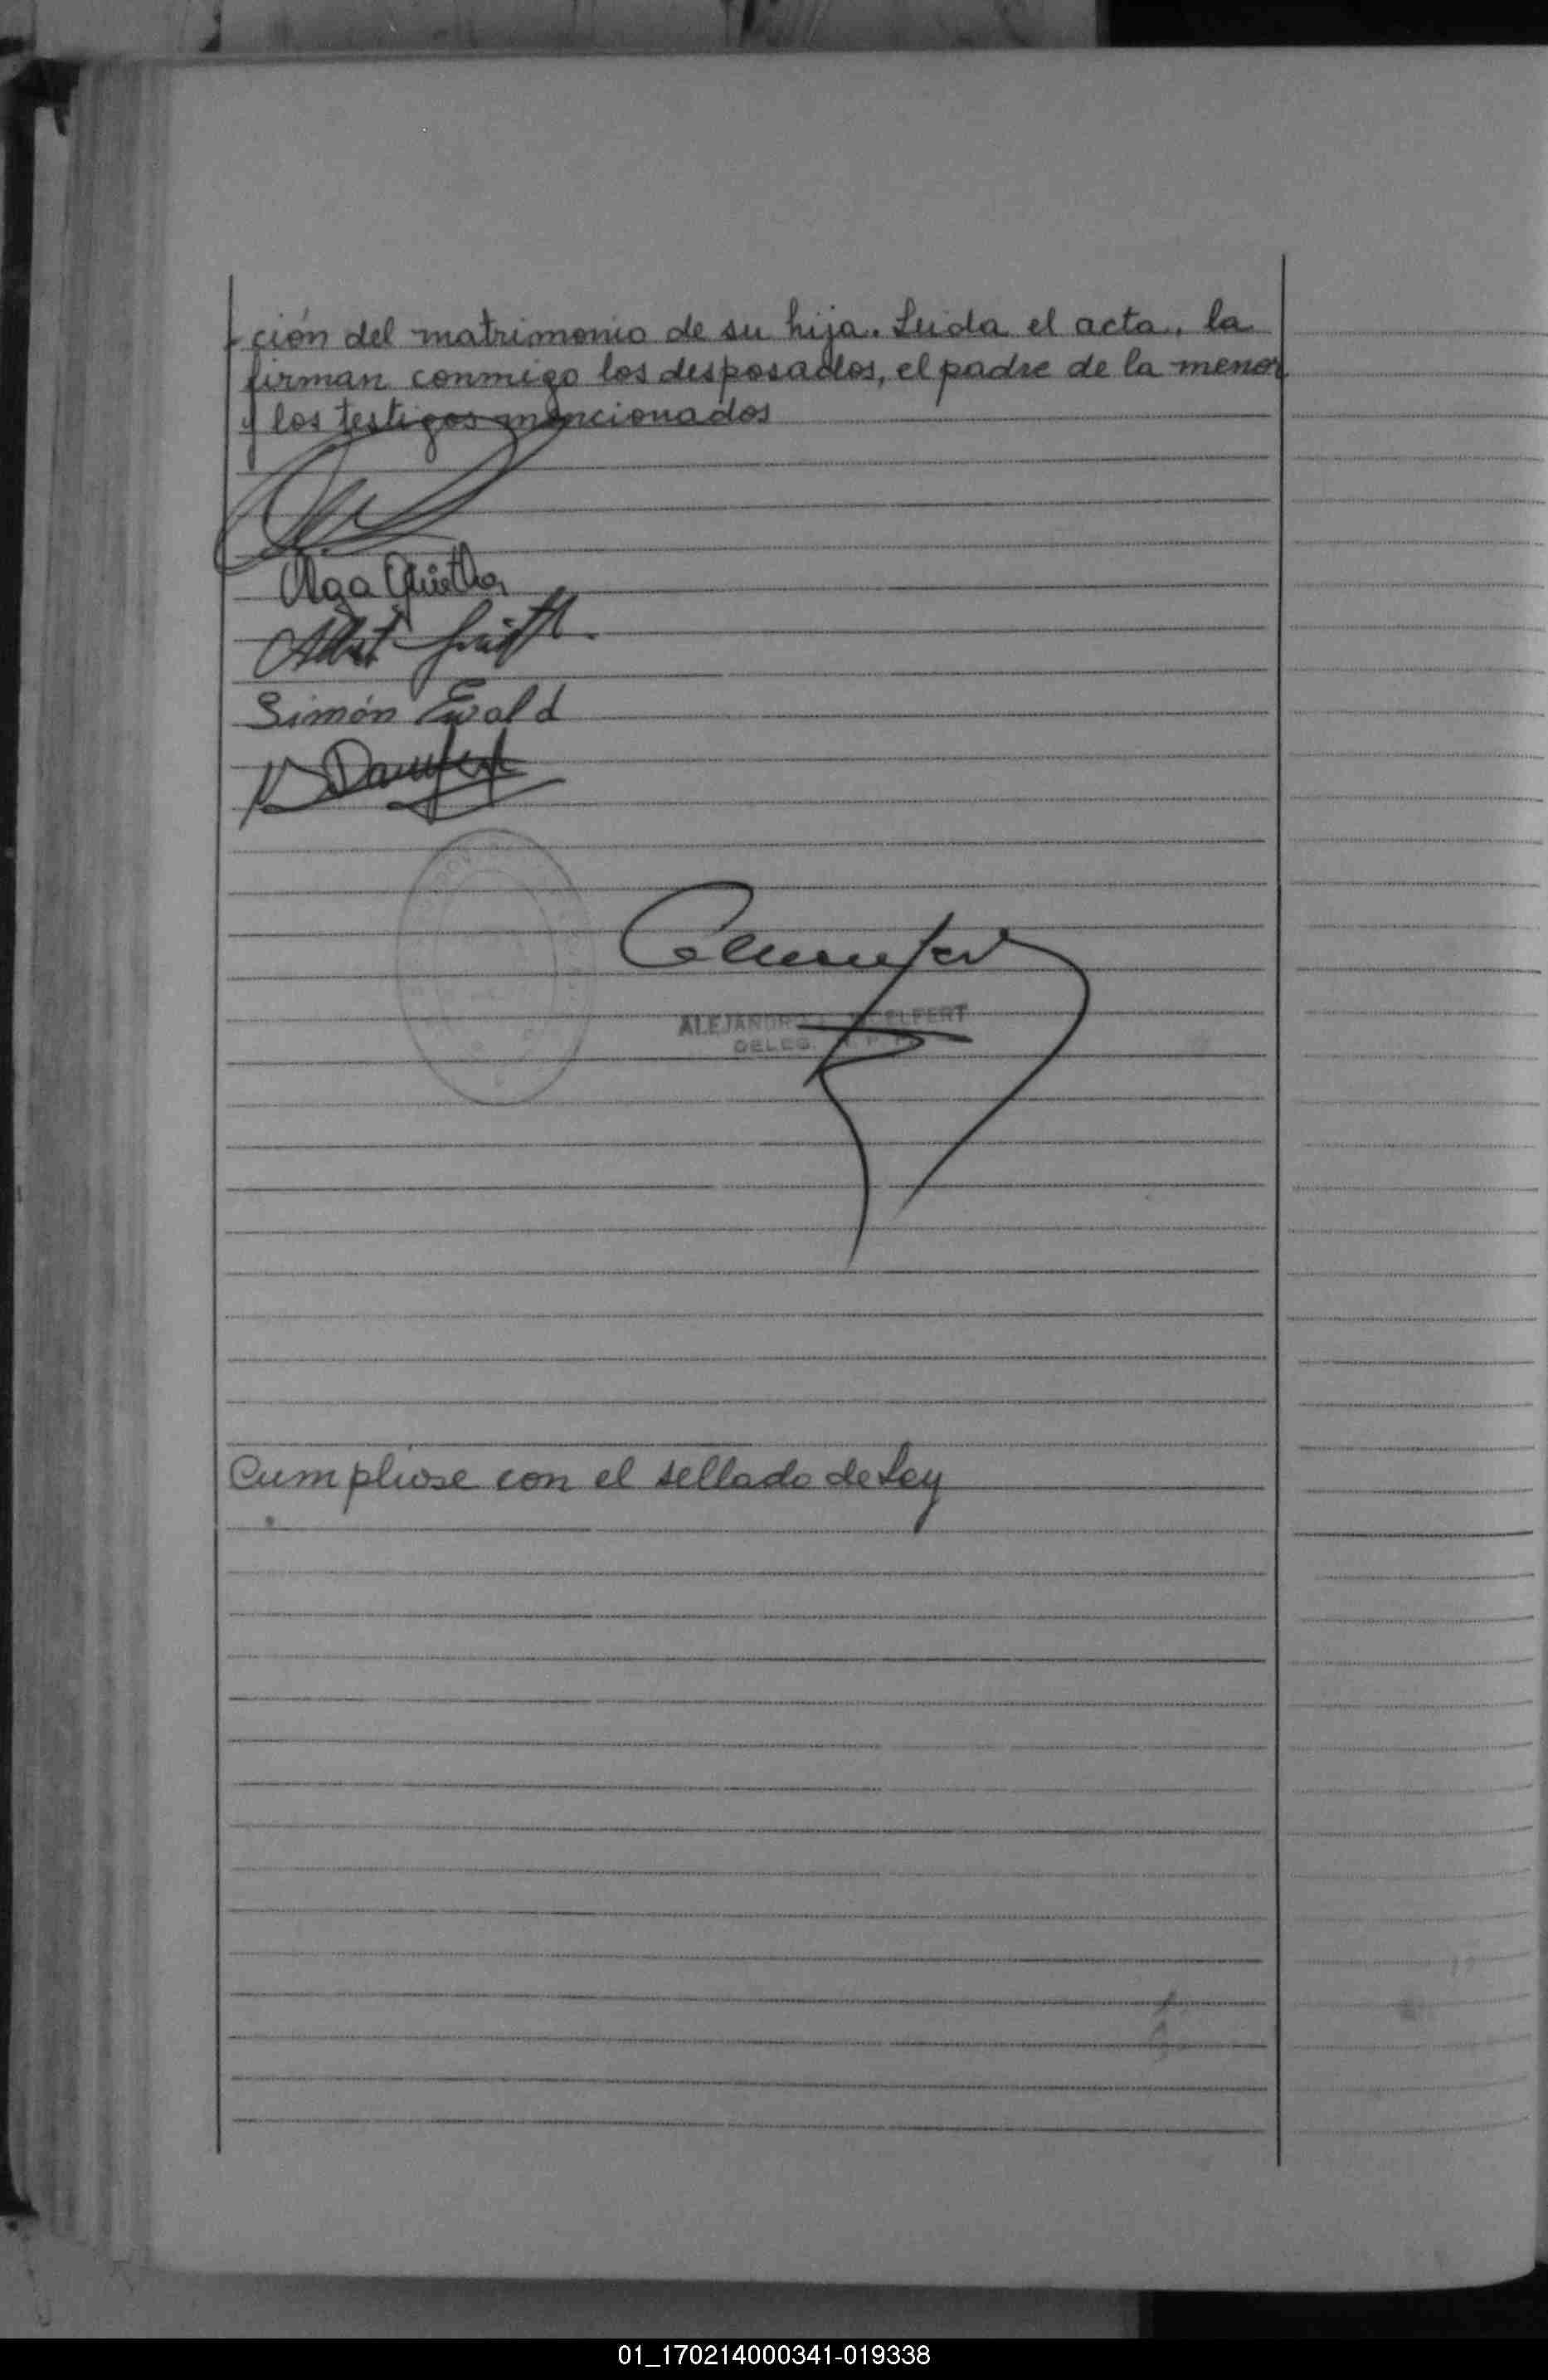 ción del matrimonio de su hija. Leida el acta, la
firman conmigo los desposados, el padre de la menor
y los testigos mencionados
Olga
Simón Ewald
ALEJANDRO
DELEG.
Cumplióse con el sellado de Ley
01_170214000341-019338